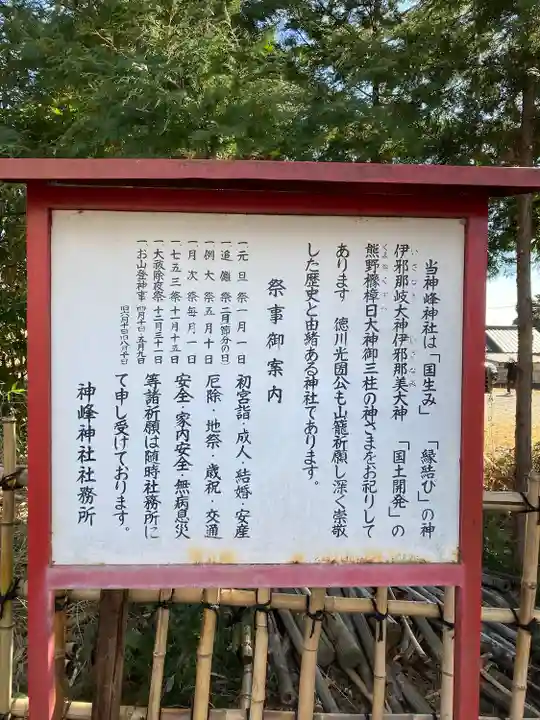 当神峰神社は「国生み」「縁結び」の神
いさなき いさなみ
伊邪那岐大神伊邪那美大神「国土開発」の
熊野櫲樟日大神御三柱の神さまをお祀りして
あります 徳川光圀公も山籠祈願し深く崇敬
した歴史と由緒ある神社であります。
祭事御案内
一元旦祭一月一日
一追儺祭二月(節分の日)
一例大祭五月十日
一月次祭毎月一日
一七五三祭十一月十五日
一大祓除夜祭十二月三十一日
一お山登神事四月十日・五月九日
初宮詣・成人・結婚・安産
厄除・地祭・歳祝・交通
安全・家内安全・無病息災
等諸祈願は随時社務所に
て申し受けております。
神峰神社社務所